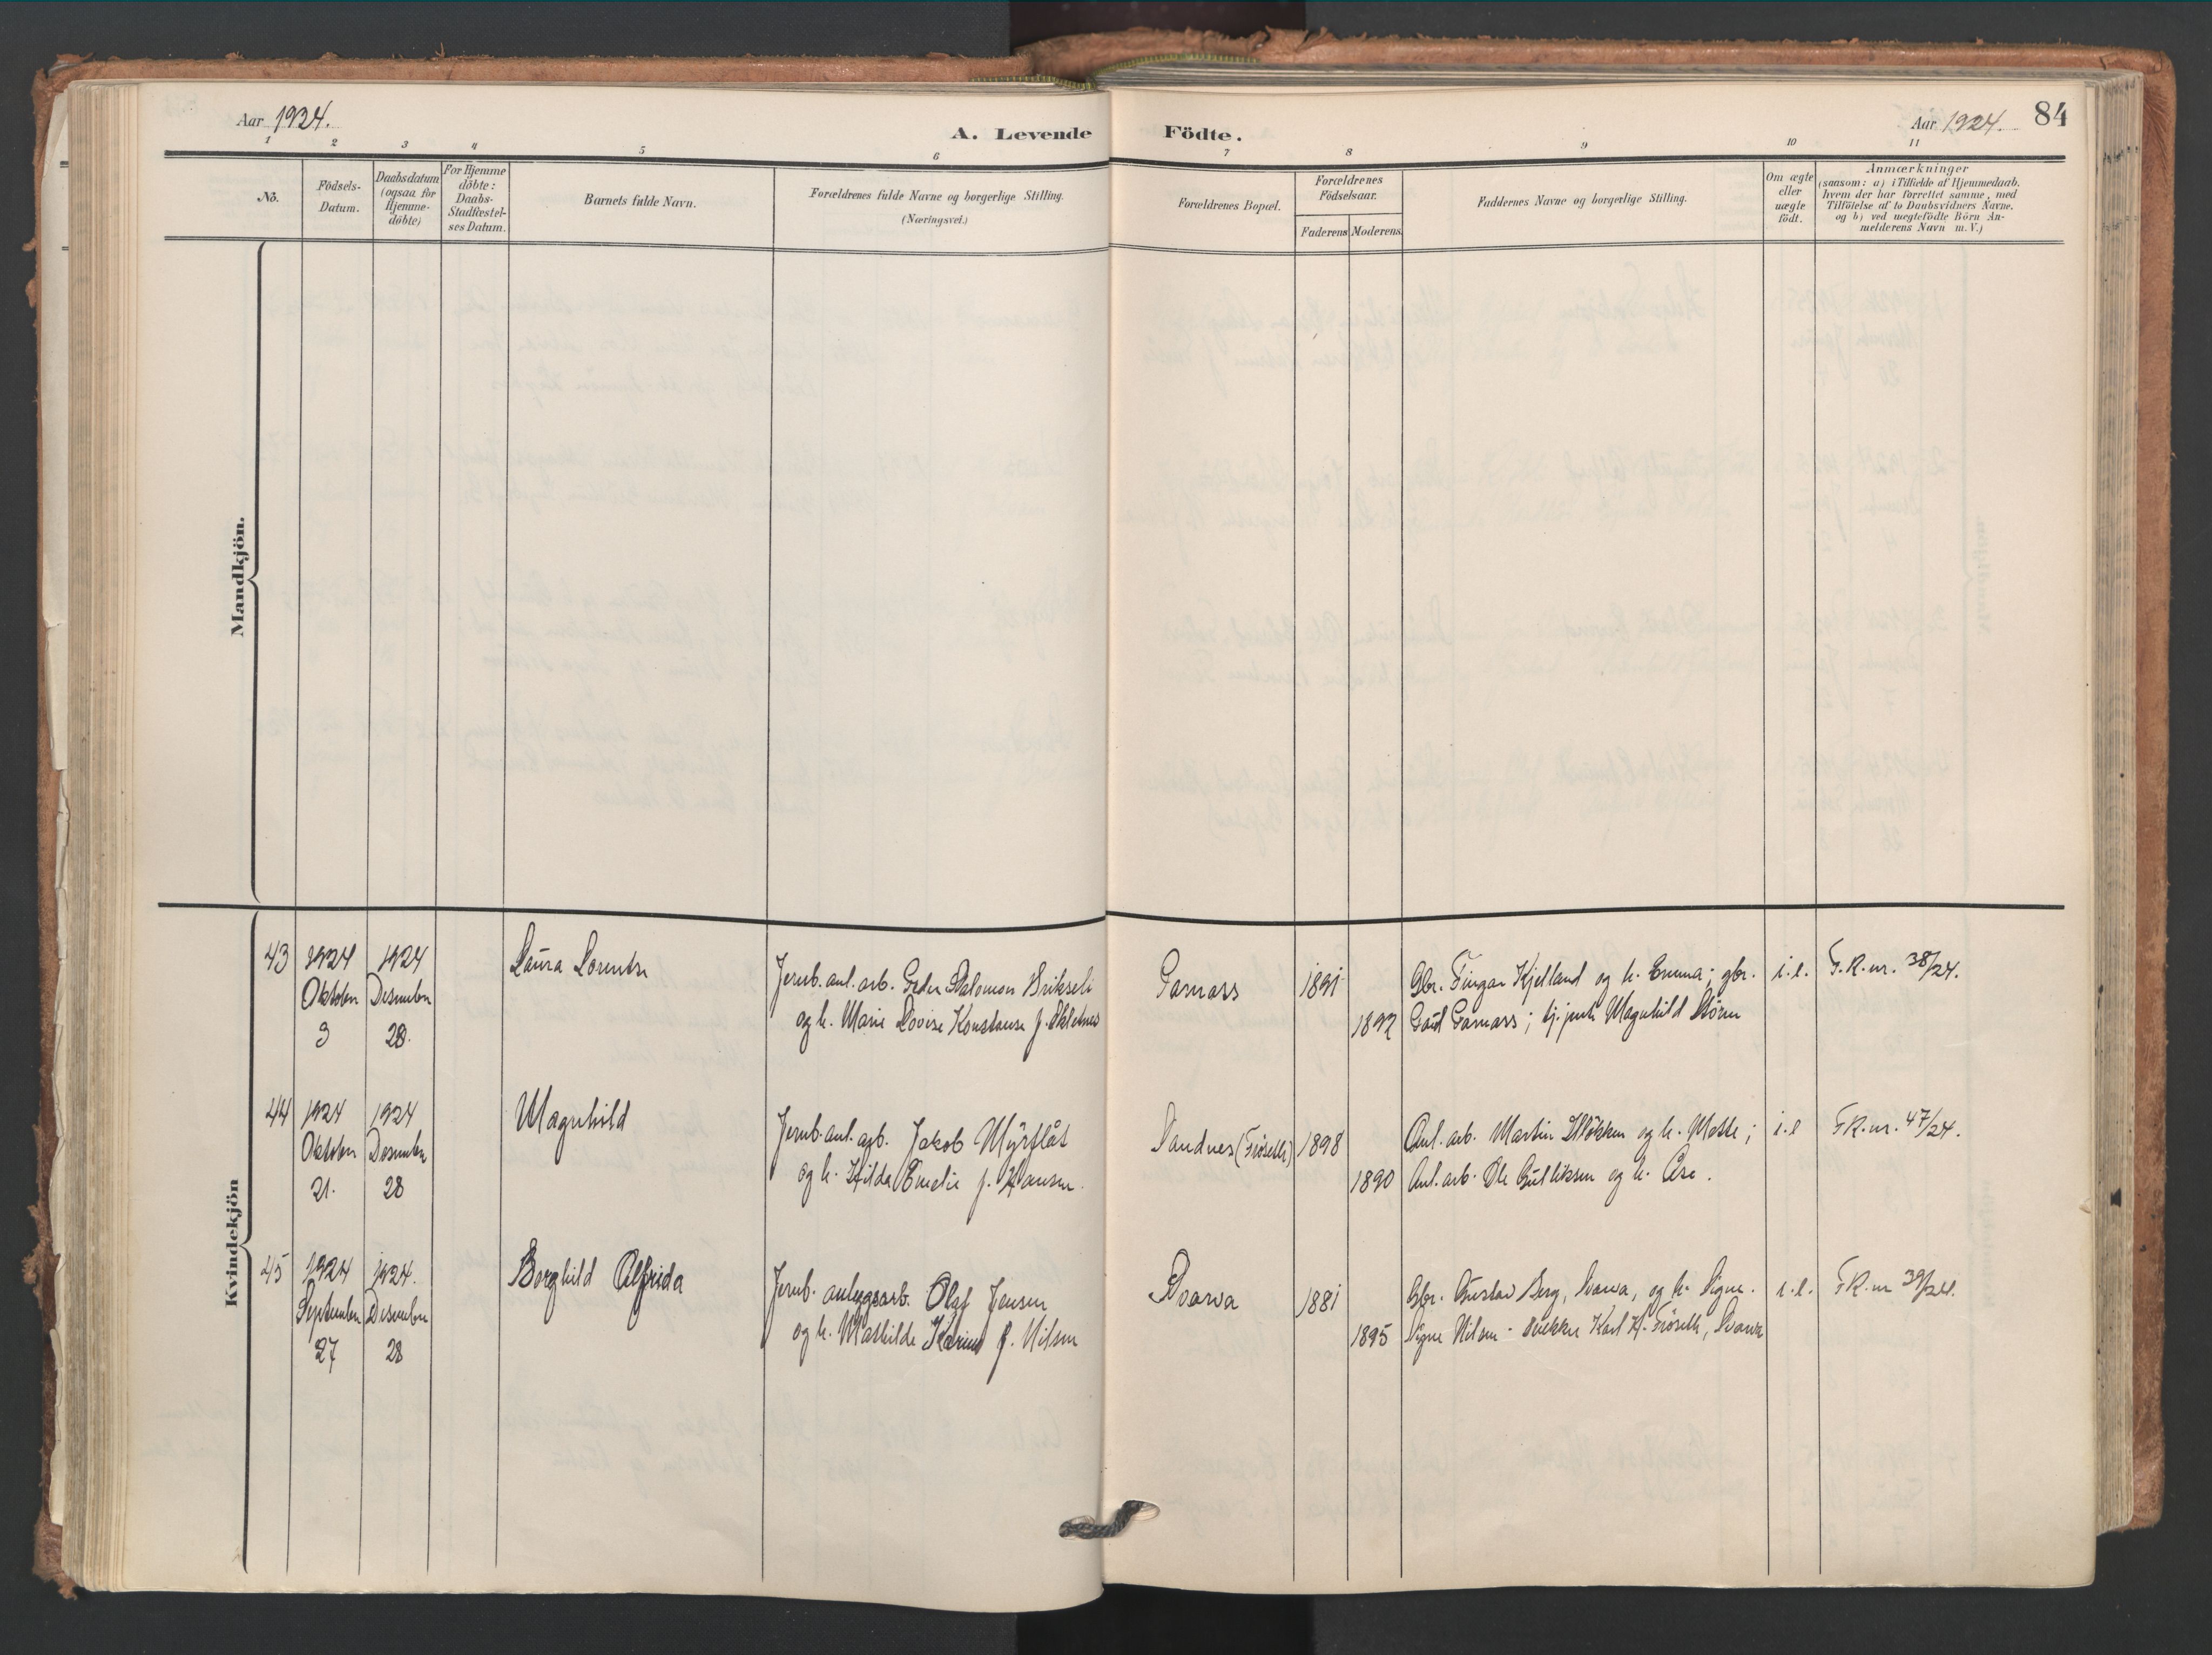 Aar 1924.
A. Levende Födte.
Aar 1924.
84
1 2 3 4 5 6 7 8 9 10 11
No.
Födsels-
Datum.
Daabsdatum
(ogsaa for
Hjemme-
döbte)
For Hjemme
döbte:
Daabs-
Stadfæstel-
ses Datum.
Barnets fulde Navn.
Forældrenes fulde Navne og borgerlige Stilling.
(Næringsvei.)
Forældrenes Bopæl.
Forældrenes
Födselsaar.
Faderens Moderens
Faddernes Navne og borgerlige Stilling.
Om ægte
eller
uægte
födt.
Anmærkninger
(saasom: a) i Tilfælde af Hjemmedaab.
hvem der har forrettet samme, med
Tilföielse af to Daabsvidners Navne.
og b) ved uegtefödte Börn An-
melderens Navn m. V.)
Mandkjön.
Kvindekjön
43
1924
Oktober
3
1924
Desember
28.
Laura Lorentse
Jernb. anl. arb. Peder Salomon
og h. Marie Lovise Konstanse f.
1891
1892
Gbr. Kjelland og h. Emma; gbr.
Magnhild
i.e.
F.R. nr. 38/24.
44
1924
Oktober
21.
1924
Desember
28
Magnhild
Jernb. anl. arb. Jakob Myrflåt
og h. Hilda Emelie f. Hansen.
Sandnes (Fröseth)
1898
1890
Anl. arb. Martin og h. Mette;
Anl. arb. Ole Gulliksen og h. Åse.
i.e
F.R. nr. 47/24.
45
1924
September
27
1924.
Desember
28
Borghild Alfrida
Jernb. anlegsarb. Olaf Jensen
og h. Mathilde f. Nilsen
Svarva
1881
1895
Gbr. Gustav Berg, Svarva, og h. Signe.
Signe Nilsen - Karl K. Fröseth, Svarva
i.e.
F.R. nr 39/24.